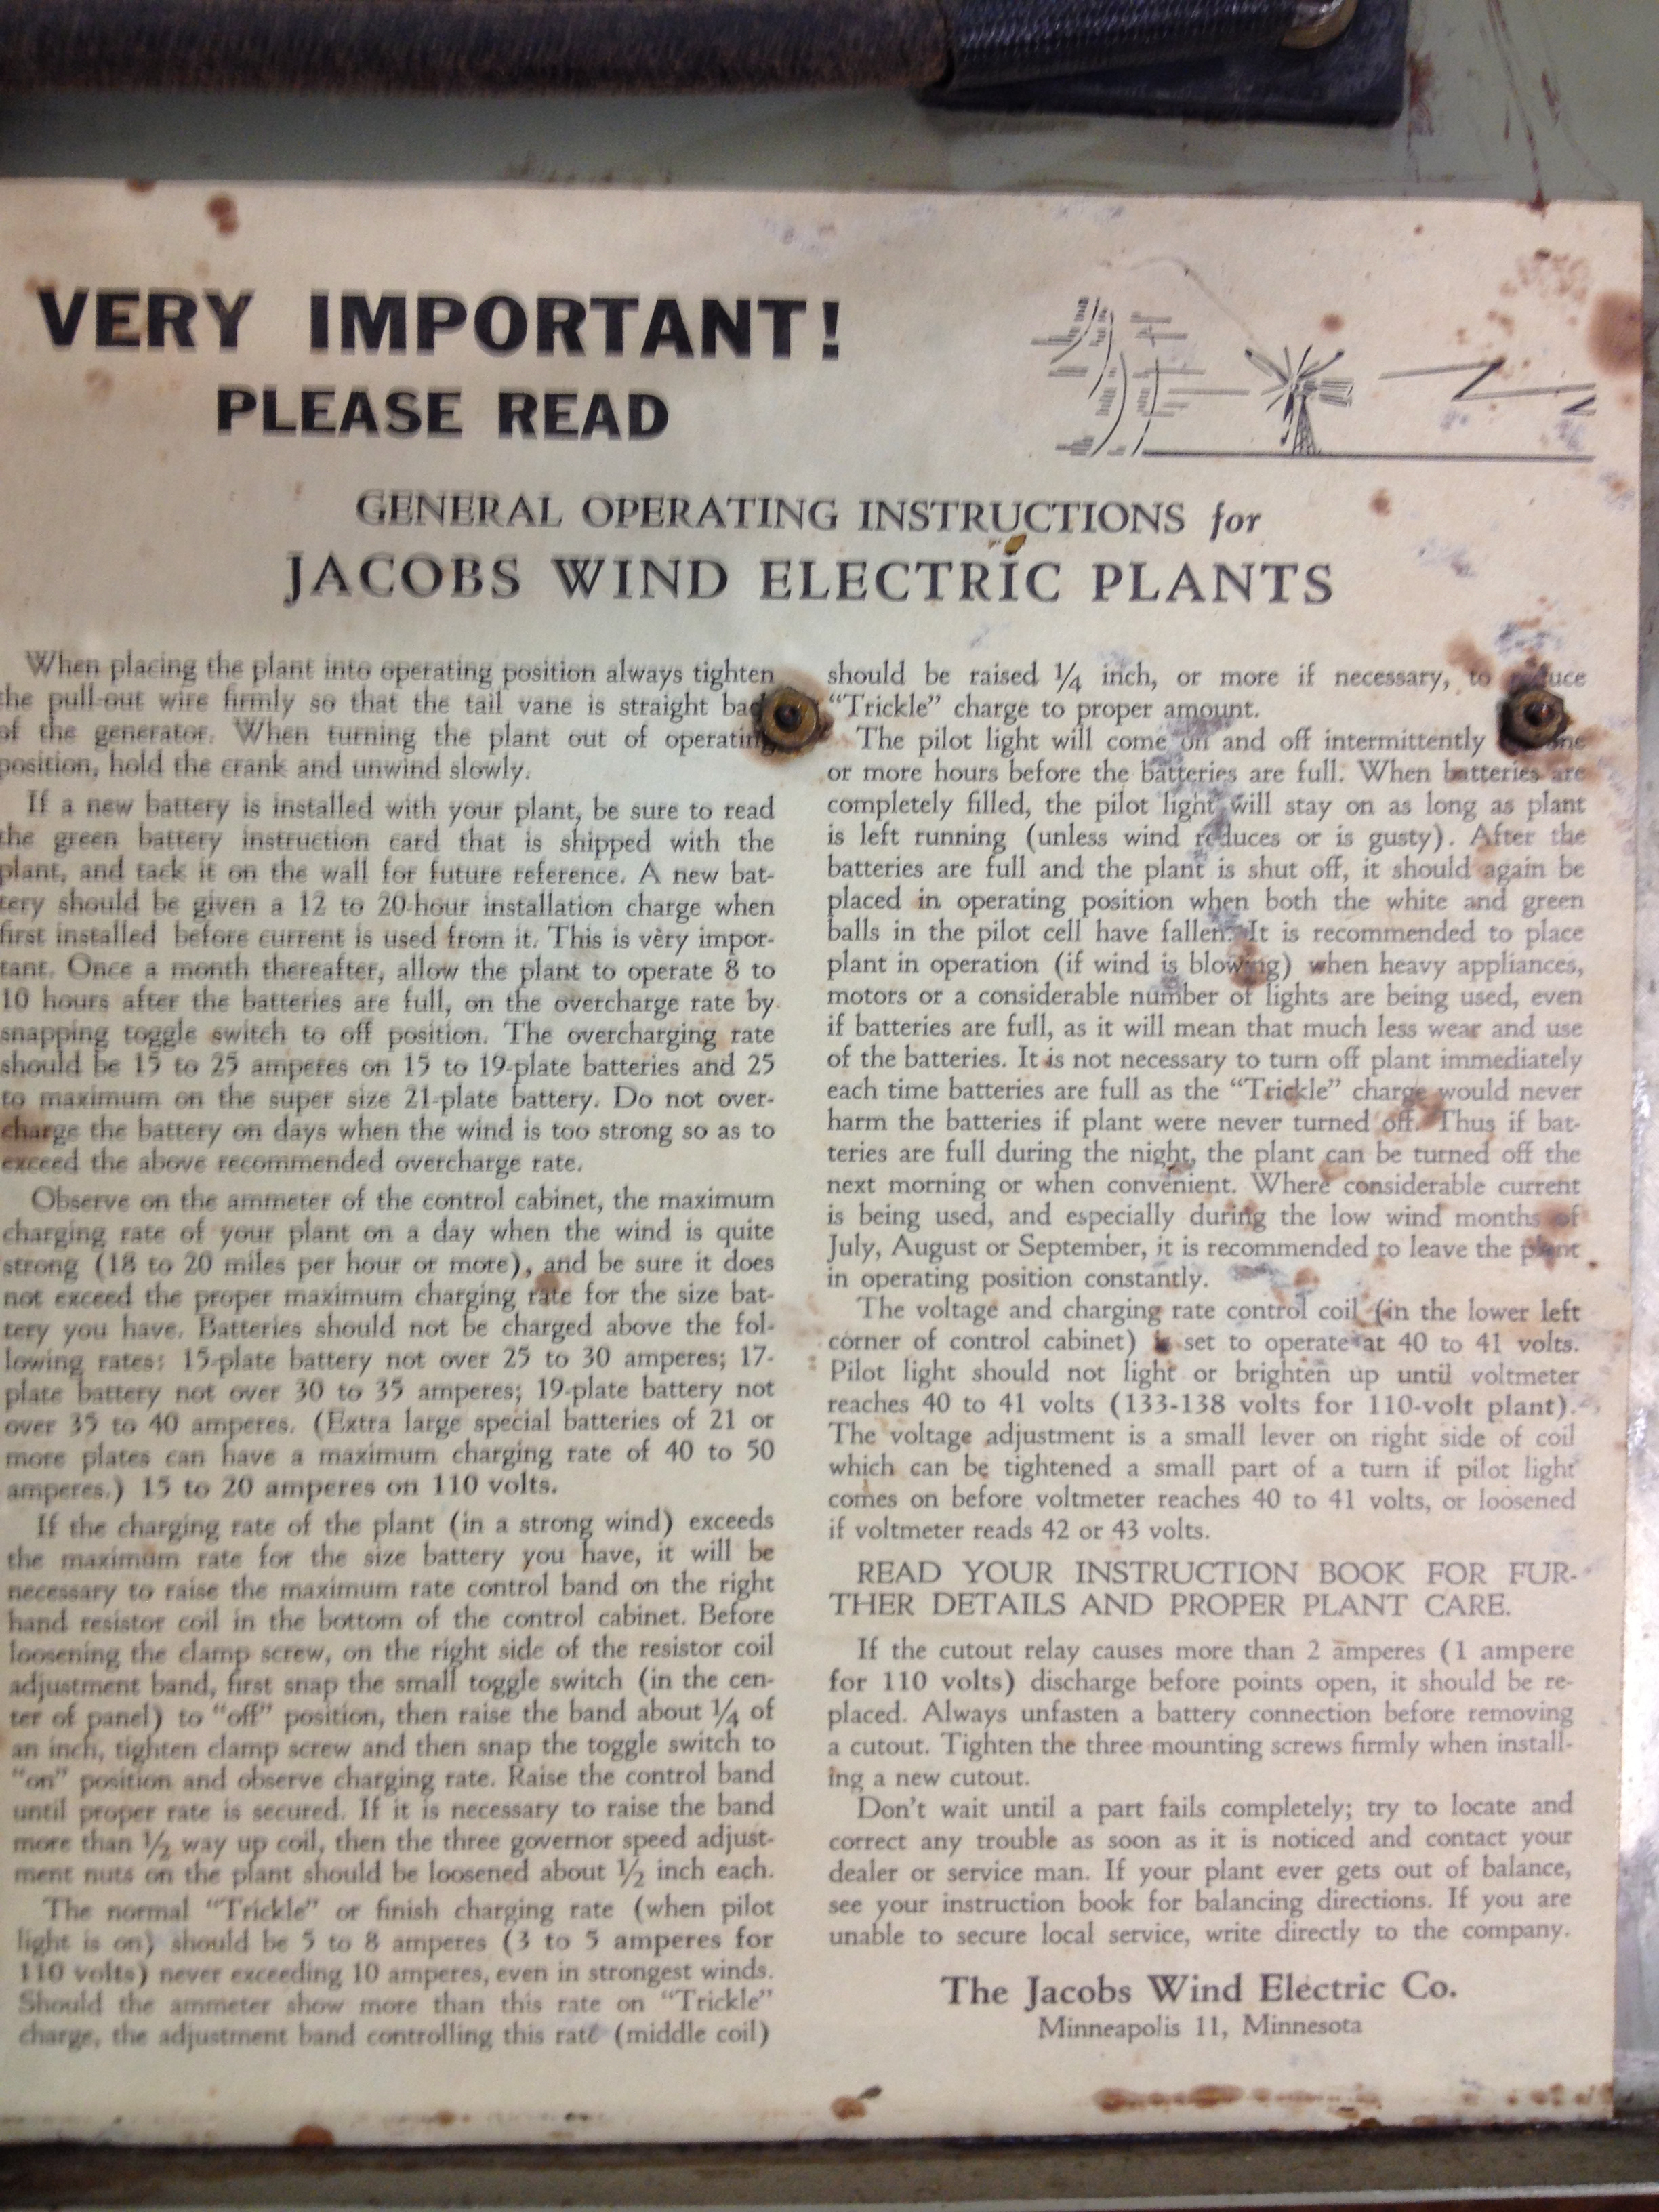 VERY IMPORTANT!
PLEASE READ
GENERAL OPERATING INSTRUCTIONS for
JACOBS WIND ELECTRIC PLANTS
When placing the plant into operating position always tighten
the pull-out wire firmly so that the tail vane is straight back
of the generator. When turning the plant out of operating
position, hold the crank and unwind slowly.
If a new battery is installed with your plant, be sure to read
the green battery instruction card that is shipped with the
plant, and tack it on the wall for future reference. A new bat-
tery should be given a 12 to 20-hour installation charge when
first installed before current is used from it. This is very impor-
tant. Once a month thereafter, allow the plant to operate 8 to
10 hours after the batteries are full, on the overcharge rate by
snapping toggle switch to off position. The overcharging rate
should be 15 to 25 amperes on 15 to 19-plate batteries and 25
to maximum on the super size 21-plate battery. Do not over-
charge the battery on days when the wind is too strong so as to
exceed the above recommended overcharge rate.
Observe on the ammeter of the control cabinet, the maximum
charging rate of your plant on a day when the wind is quite
strong (18 to 20 miles per hour or more), and be sure it does
not exceed the proper maximum charging rate for the size bat-
tery you have. Batteries should not be charged above the fol-
lowing rates: 15-plate battery not over 25 to 30 amperes; 17-
plate battery not over 30 to 35 amperes; 19-plate battery not
over 35 to 40 amperes. (Extra large special batteries of 21 or
more plates can have a maximum charging rate of 40 to 50
amperes.) 15 to 20 amperes on 110 volts.
If the charging rate of the plant (in a strong wind) exceeds
the maximum rate for the size battery you have, it will be
necessary to raise the maximum rate control band on the right
hand resistor coil in the bottom of the control cabinet. Before
loosening the clamp screw, on the right side of the resistor coil
adjustment band, first snap the small toggle switch (in the cen-
ter of panel) to "off" position, then raise the band about 1/4 of
an inch, tighten clamp screw and then snap the toggle switch to
"on" position and observe charging rate. Raise the control band
until proper rate is secured. If it is necessary to raise the band
more than 1/2 way up coil, then the three governor speed adjust-
ment nuts on the plant should be loosened about 1/2 inch each.
The normal "Trickle" or finish charging rate (when pilot
light is on) should be 5 to 8 amperes (3 to 5 amperes for
110 volts) never exceeding 10 amperes, even in strongest winds.
Should the ammeter show more than this rate on "Trickle"
charge, the adjustment band controlling this rate (middle coil)
should be raised 1/4 inch, or more if necessary, to reduce
"Trickle" charge to proper amount.
The pilot light will come on and off intermittently
or more hours before the batteries are full. When batteries are
completely filled, the pilot light will stay on as long as plant
is left running (unless wind reduces or is gusty). After the
batteries are full and the plant is shut off, it should again be
placed in operating position when both the white and green
balls in the pilot cell have fallen. It is recommended to place
plant in operation (if wind is blowing) when heavy appliances,
motors or a considerable number of lights are being used, even
if batteries are full, as it will mean that much less wear and use
of the batteries. It is not necessary to turn off plant immediately
each time batteries are full as the "Trickle" charge would never
harm the batteries if plant were never turned off. Thus if bat-
teries are full during the night, the plant can be turned off the
next morning or when convenient. Where considerable current
is being used, and especially during the low wind months of
July, August or September, it is recommended to leave the plant
in operating position constantly.
The voltage and charging rate control coil (in the lower left
corner of control cabinet) is set to operate at 40 to 41 volts.
Pilot light should not light or brighten up until voltmeter
reaches 40 to 41 volts (133-138 volts for 110-volt plant).
The voltage adjustment is a small lever on right side of coil
which can be tightened a small part of a turn if pilot light
comes on before voltmeter reaches 40 to 41 volts, or loosened
if voltmeter reads 42 or 43 volts.
READ YOUR INSTRUCTION BOOK FOR FUR-
THER DETAILS AND PROPER PLANT CARE.
If the cutout relay causes more than 2 amperes (1 ampere
for 110 volts) discharge before points open, it should be re-
placed. Always unfasten a battery connection before removing
a cutout. Tighten the three mounting screws firmly when install-
ing a new cutout.
Don't wait until a part fails completely; try to locate and
correct any trouble as soon as it is noticed and contact your
dealer or service man. If your plant ever gets out of balance,
see your instruction book for balancing directions. If you are
unable to secure local service, write directly to the company.
The Jacobs Wind Electric Co.
Minneapolis 11, Minnesota